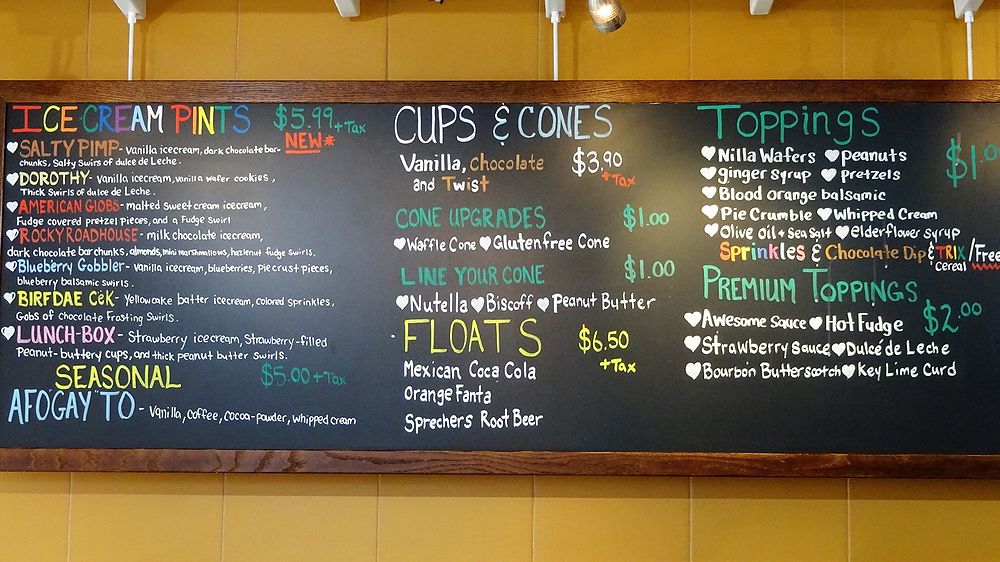 ICE CREAM PINTS $5.99 + Tax
NEW*
SALTY PIMP - Vanilla icecream, dark chocolate bar-
chunks, Salty Swirs of dulce de Leche.
DOROTHY - Vanilla icecream, vanilla wafer cookies,
Thick Swirls of dulce de Leche.
AMERICAN GLOBS - malted Sweet cream icecream,
Fudge covered pretzel pieces, and a Fudge Swirl
ROCKY ROADHOUSE - milk chocolate icecream,
dark chocolate bar chunks, almonds, mini marshmallows, hazelnut fudge Swirls.
Blueberry Gobbler - Vanilla icecream, blueberries, pie crust pieces,
blueberry balsamic Swirls.
BIRFDAE CēK - Yellow cake batter icecream, colored Sprinkles,
Gobs of chocolate Frosting Swirls.
LUNCH-BOX - Strawberry icecream, Strawberry-filled
Peanut-buttery cups, and thick peanut butter Swirls.
SEASONAL $5.00 + Tax
AFOGAY"TO - Vanilla, coffee, cocoa-powder, whipped cream
CUPS & CONES
Vanilla, Chocolate $3.90
and Twist + Tax
CONE UPGRADES $1.00
Waffle Cone Gluten free Cone
LINE YOUR CONE $1.00
Nutella Biscoff Peanut Butter
FLOATS $6.50
+ Tax
Mexican Coca Cola
Orange Fanta
Sprechers Root Beer
Toppings $1.00
Nilla Wafers peanuts
ginger syrup pretzels
Blood orange balsamic
Pie Crumble Whipped Cream
Olive Oil + Sea Salt elderflower syrup
Sprinkles & Chocolate Dip & TRIX /Free
cereal
PREMIUM TOPPINGS $2.00
Awesome Sauce Hot Fudge
Strawberry Sauce Dulce de Leche
Bourbon Butterscotch Key Lime Curd